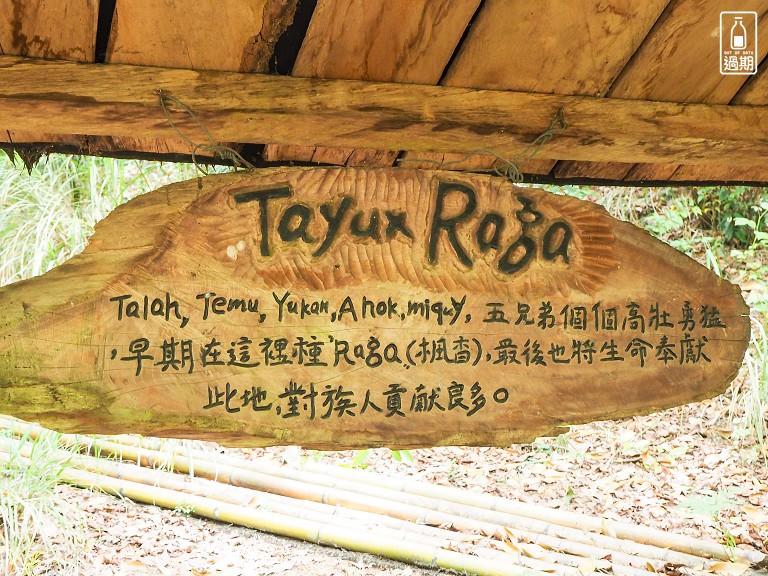 OUT OF DATE
過期
Tayux Raga
Talah, Temu, Yukan, Ahok, miquy, 五兄弟個個高壯勇猛
,早期在這裡種Raga(楓香),最後也將生命奉獻
此地,對族人貢獻良多。